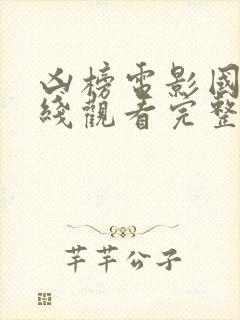 凶榜電影國
綫觀看完整
芊芊公子